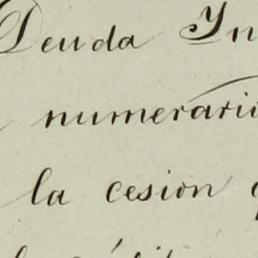 Deuda In
numerari
la cesion